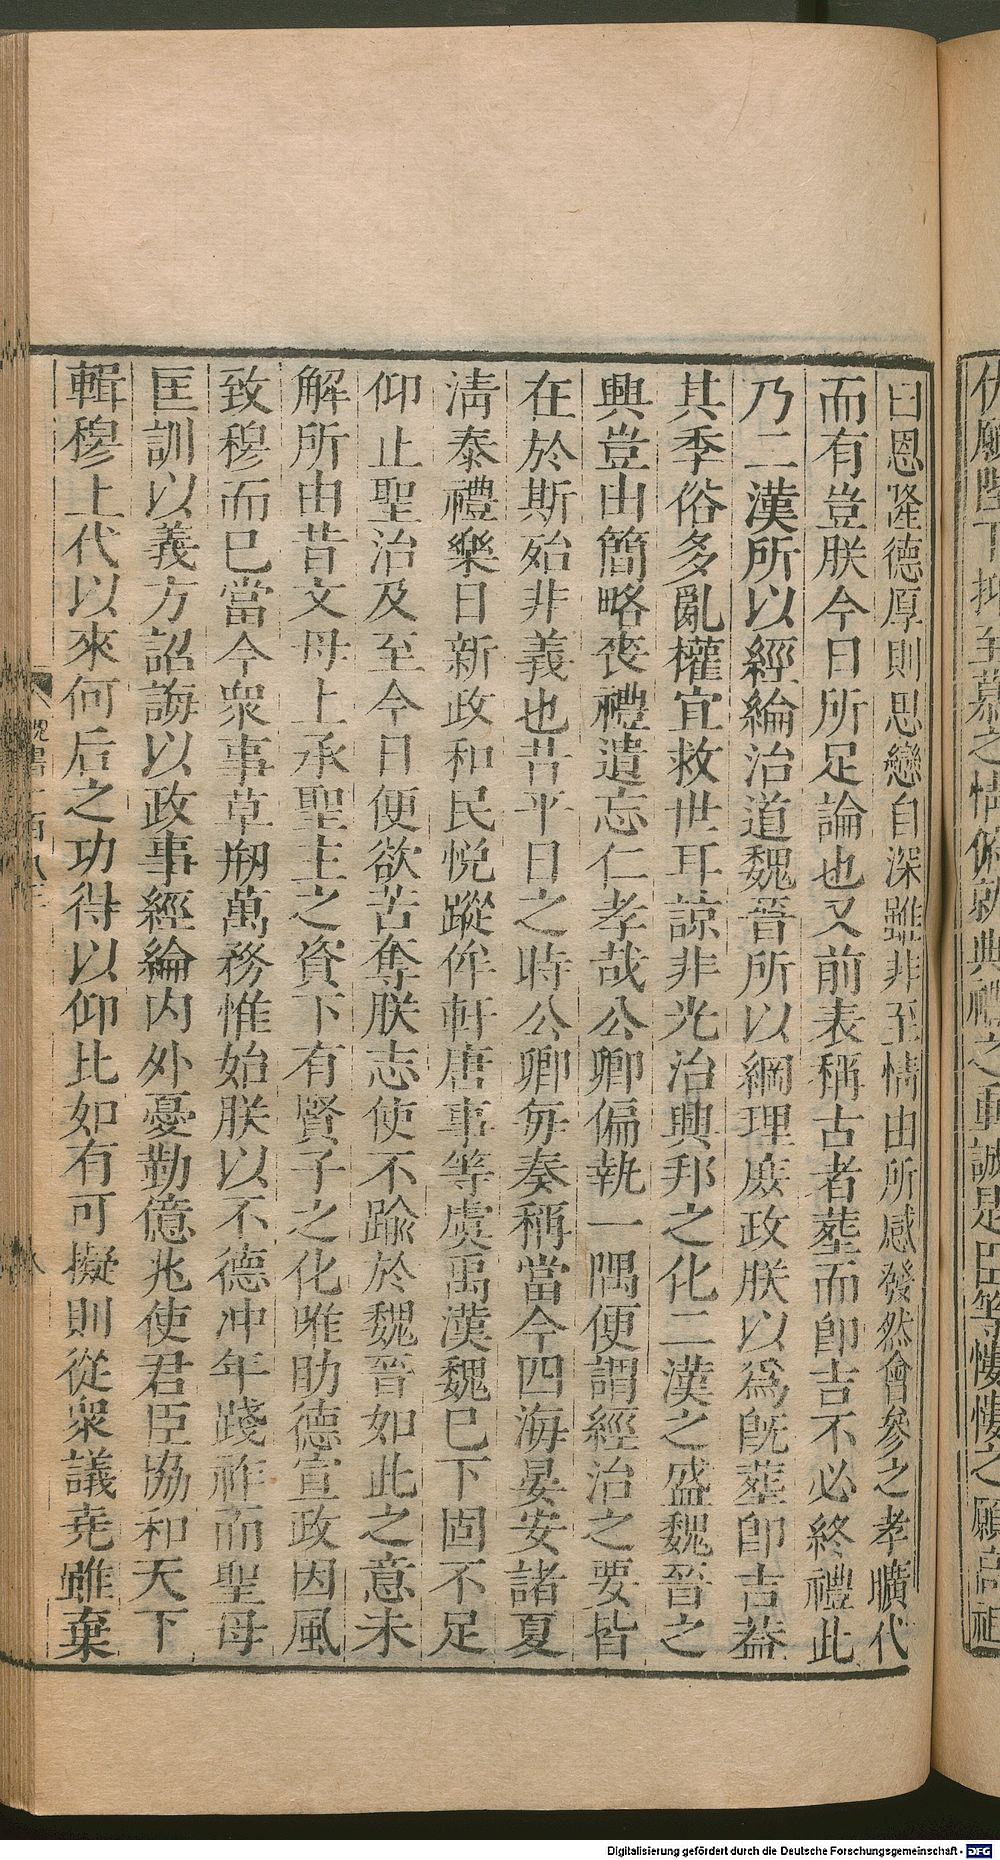 伏願陛下抑至慕之情俯就典禮之重誠是臣等慺慺之願高祖
曰恩隆德厚則思戀自深雖非至情由所感發然會參之孝曠代
而有豈朕今日所足論也又前表稱古者葬而卽吉不必終禮此
乃二漢所以經綸治道魏晉所以綱理庶政朕以爲旣葬卽吉葢
其季俗多亂權宜救世耳諒非光治興邦之化二漢之盛魏晉之
興豈由簡略喪禮遺忘仁孝哉公卿偏執一隅便謂經治之要皆
在於斯殆非義也昔平日之時公卿每奏稱當今四海晏安諸夏
淸泰禮樂日新政和民悅蹤侔軒唐事等虞禹漢魏巳下固不足
仰止聖治及至今日便欲苦奪朕志使不踰於魏晉如此之意未
解所由昔文母上承聖主之資下有賢子之化唯助德宣政因風
致穆而巳當今衆事草剏萬務惟始朕以不德冲年踐祚而聖母
匡訓以義方詔誨以政事經綸内外憂勤億兆使君臣協和天下
輯穆上代以來何后之功得以仰比如有可擬則從衆議堯雖棄
魏書一百八三
八
Digitalisierung gefördert durch die Deutsche Forschungsgemeinschaft - DFG